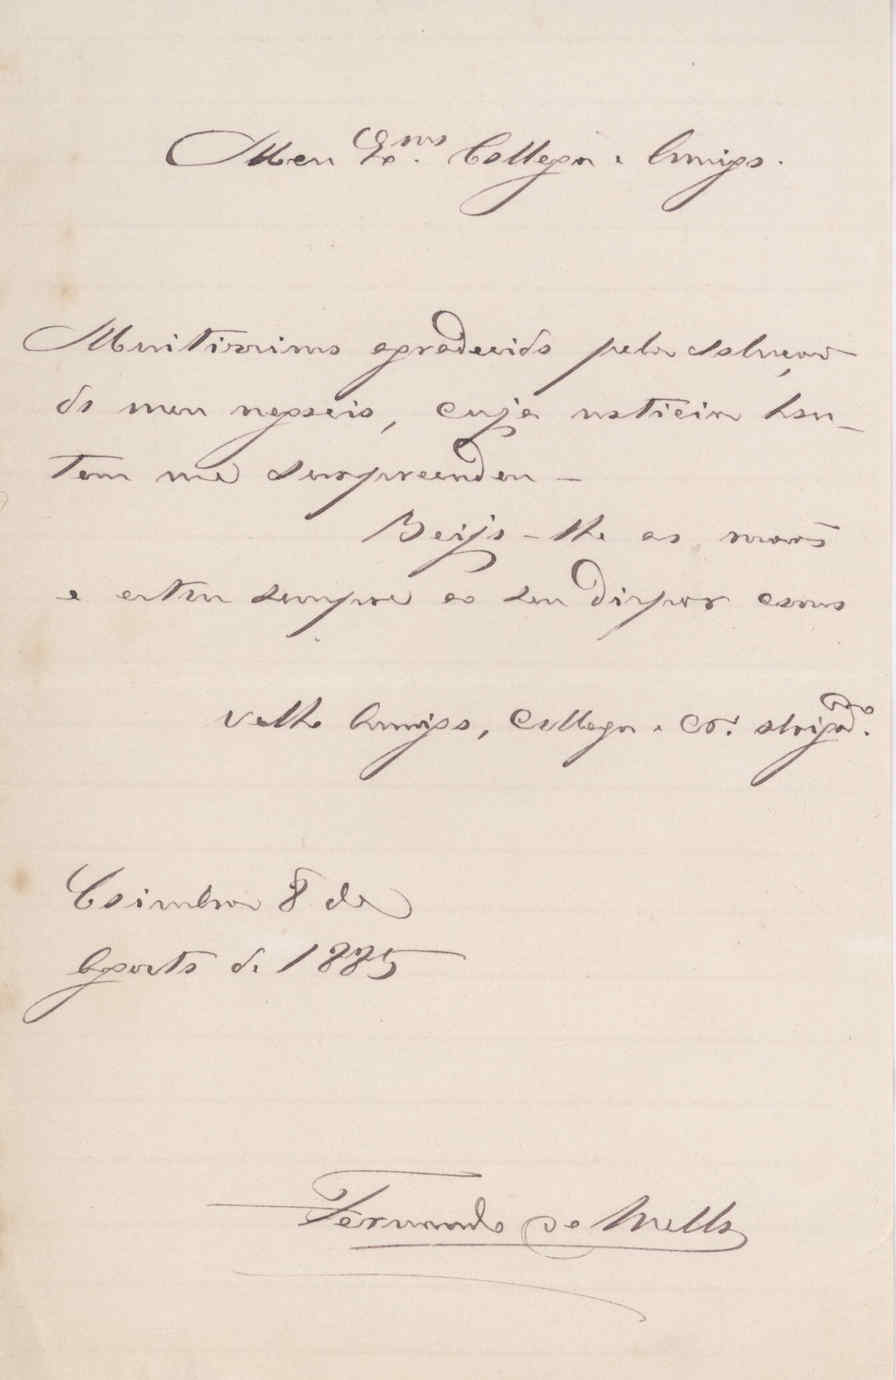 Meu Ex.mo Collega e Amigo.
Muitissimo agradecido pela solução
do meu negocio, cuja noticia hon-
tem me surpreendeu -
Beijo-lhe as mãos
e estou sempre ao seu dispor como
velho Amigo, Collega e Cr.º obrigad.º
Coimbra 8 de
Agosto de 1885
Fernando de Mello